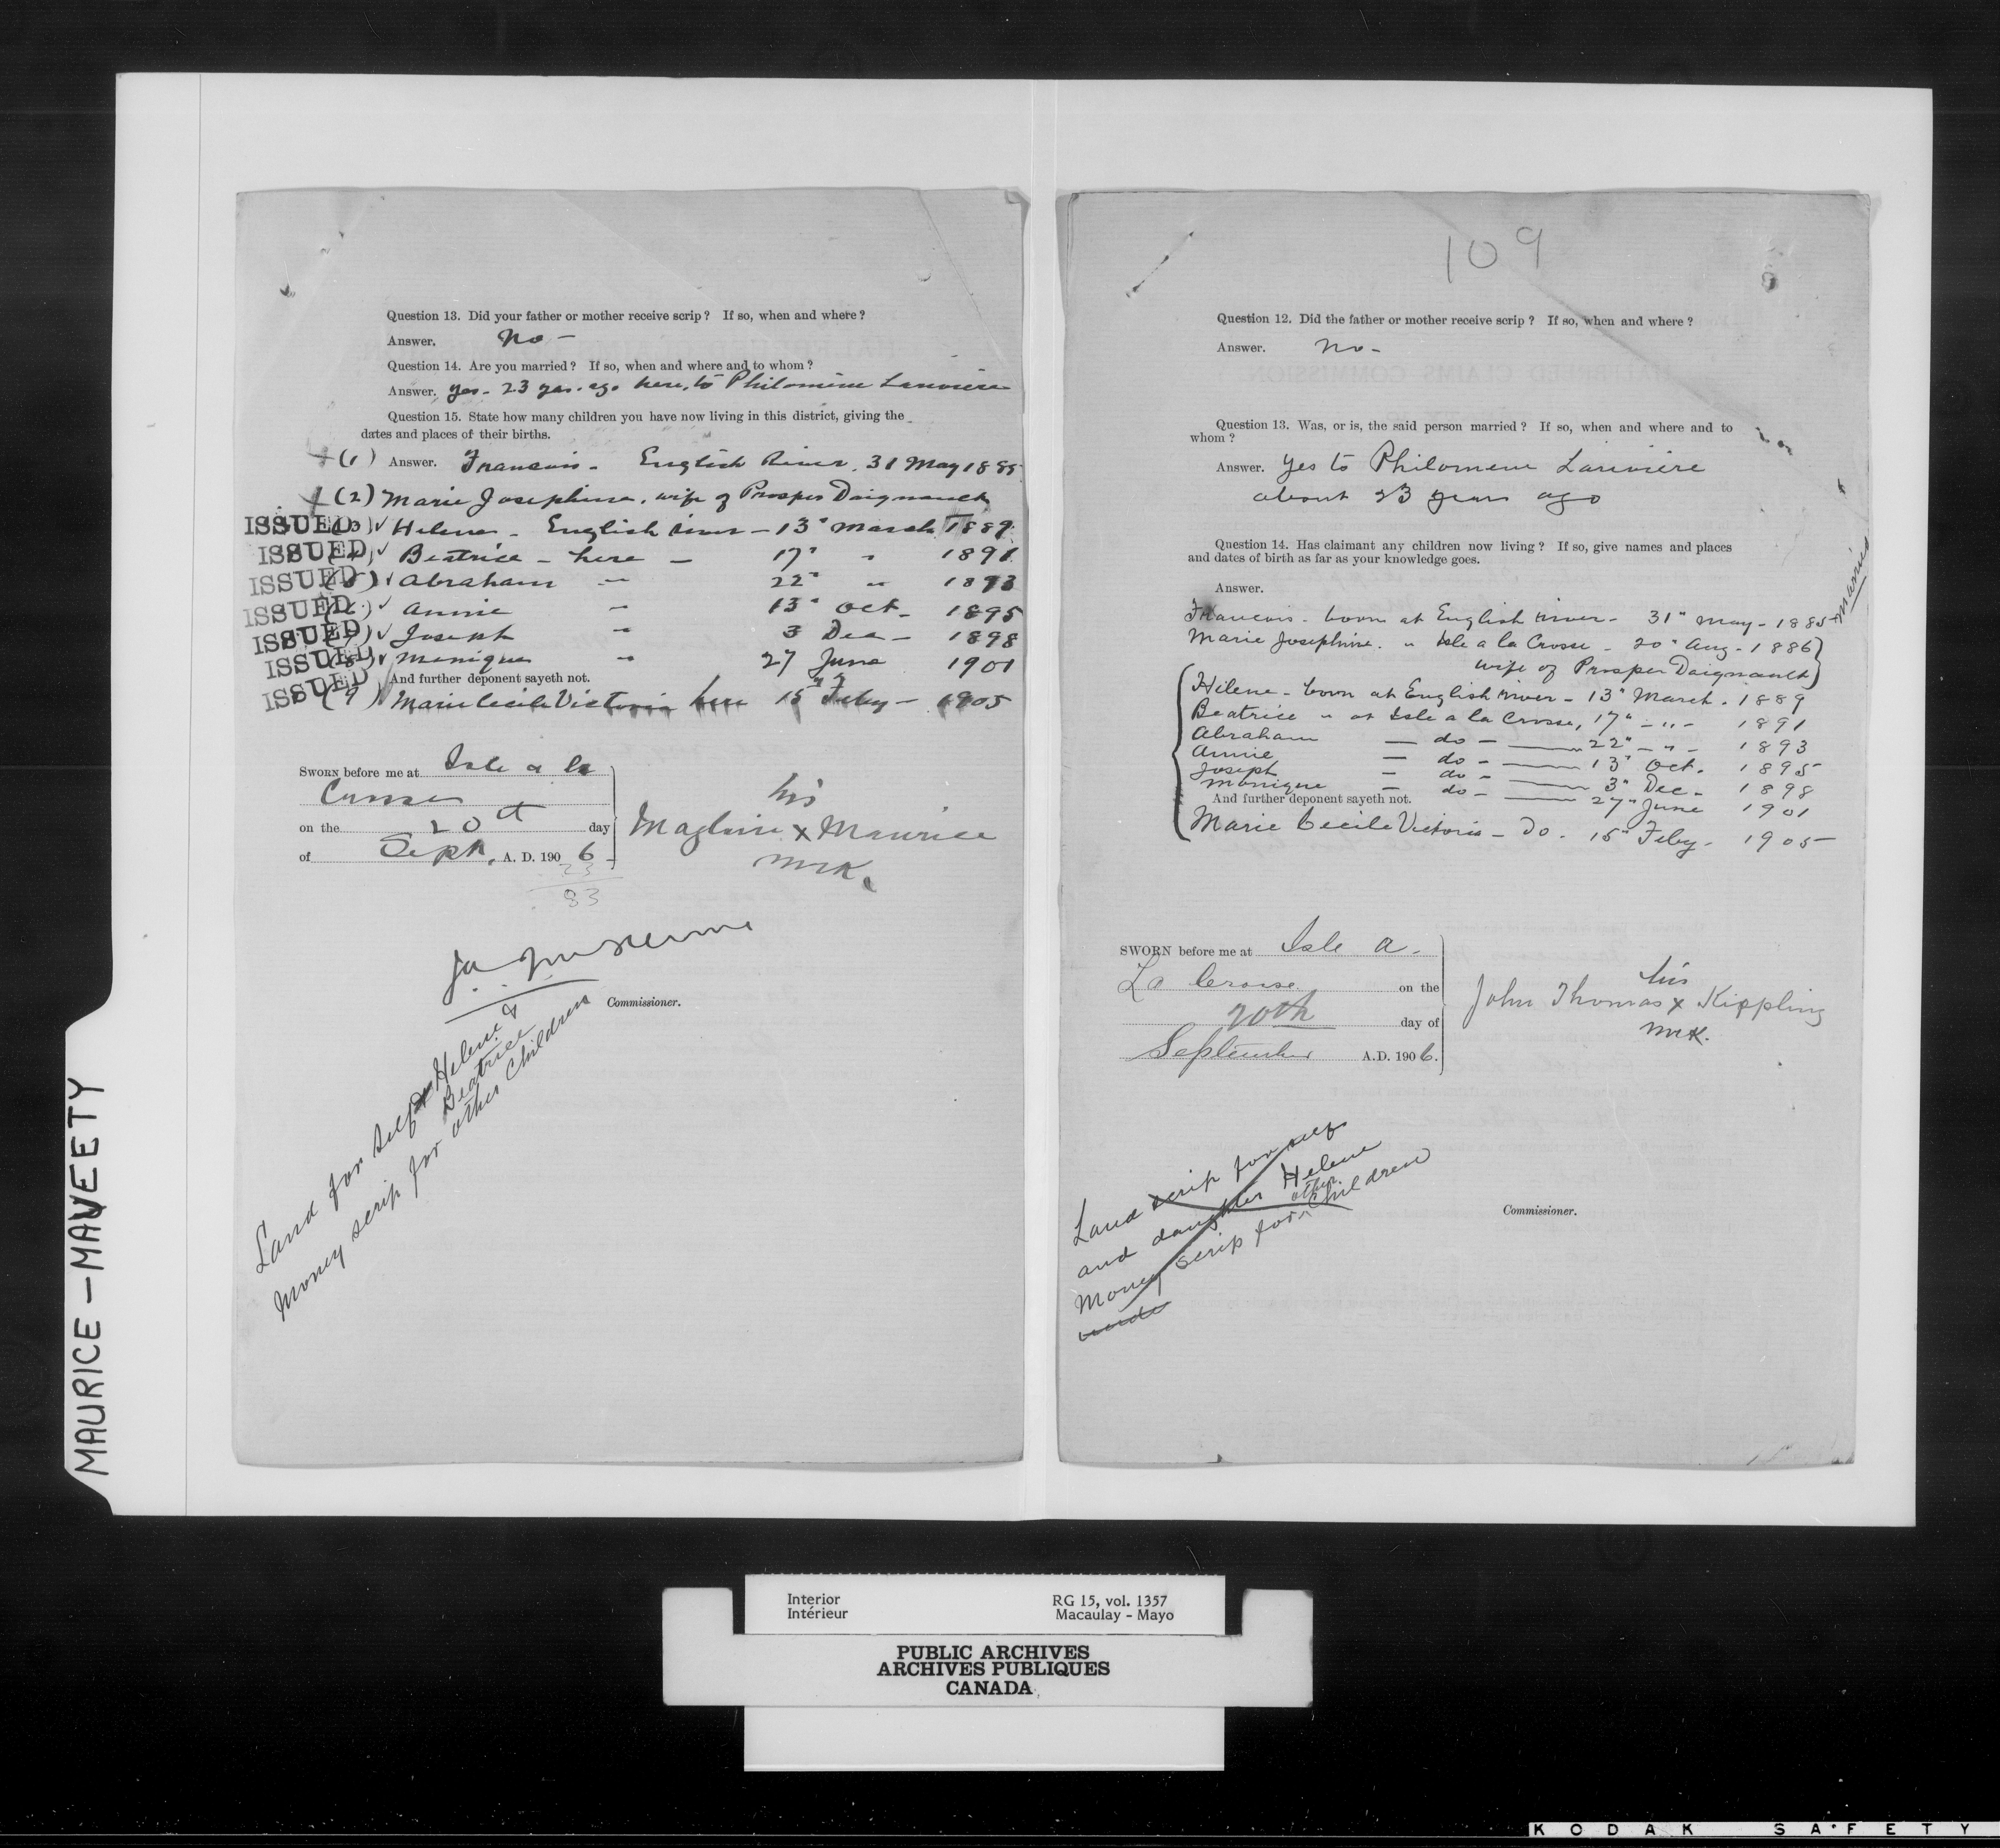 MAURICE - MAVEETY
Question 13. Did your father or mother receive scrip? If so, when and where?
Answer. No -
Question 14. Are you married? If so, when and where and to whom?
Answer. yes - 23 yrs. ago here, to Philomene Lariviere
Question 15. State how many children you have now living in this district, giving the
dates and places of their births.
(1) Answer. Francois - English River, 31 May 1885
(2) Marie Josephine, wife of Prosper Daignault
ISSUED (3) Helene - English river - 13" March 1889
ISSUED Beatrice - here - 17" " 1891
ISSUED Abraham " 22" " 1893
ISSUED Annie " 13" Oct - 1895
ISSUED Joseph " 3 Dec - 1898
ISSUED (8) Monique " 27 June 1901
And further deponent sayeth not.
ISSUED (9) Marie Cecile Victoria here 15" Feby - 1905
SWORN before me at Isle a la
Crosse
on the 20th day
of Sept. A. D. 1906
23
83
his
Magloire x Maurice
mrk.
Commissioner.
Land for self & Helene &
Beatrice
Money scrip for other Children
109
8
Question 12. Did the father or mother receive scrip? If so, when and where?
Answer. No -
Question 13. Was, or is, the said person married? If so, when and where and to
whom?
Answer. Yes to Philomene Lariviere
about 23 years ago
Question 14. Has claimant any children now living? If so, give names and places
and dates of birth as far as your knowledge goes.
Answer.
Francois - born at English river - 31" May - 1885 - married
Marie Josephine. " Isle a la Crosse - 20" Aug - 1886
wife of Prosper Daignault
Helene - born at English river - 13" March - 1889
Beatrice " at Isle a la Crosse, 17" - " - 1891
Abraham - do - 22" - " - 1893
Annie - do - 13" Oct. 1895
Joseph - do - 3" Dec - 1898
Monique - do - 27" June 1901
And further deponent sayeth not.
Marie Cecile Victoria - Do. 15" Feby - 1905
SWORN before me at Isle a.
La Crosse on the
20th day of
September A.D. 1906.
his
John Thomas x Kippling
mrk.
Land scrip for self
and daughter Helene
Money scrip for other Children
Commissioner.
Interior
Intérieur
RG 15, vol. 1357
Macaulay - Mayo
PUBLIC ARCHIVES
ARCHIVES PUBLIQUES
CANADA
KODAK SAFETY